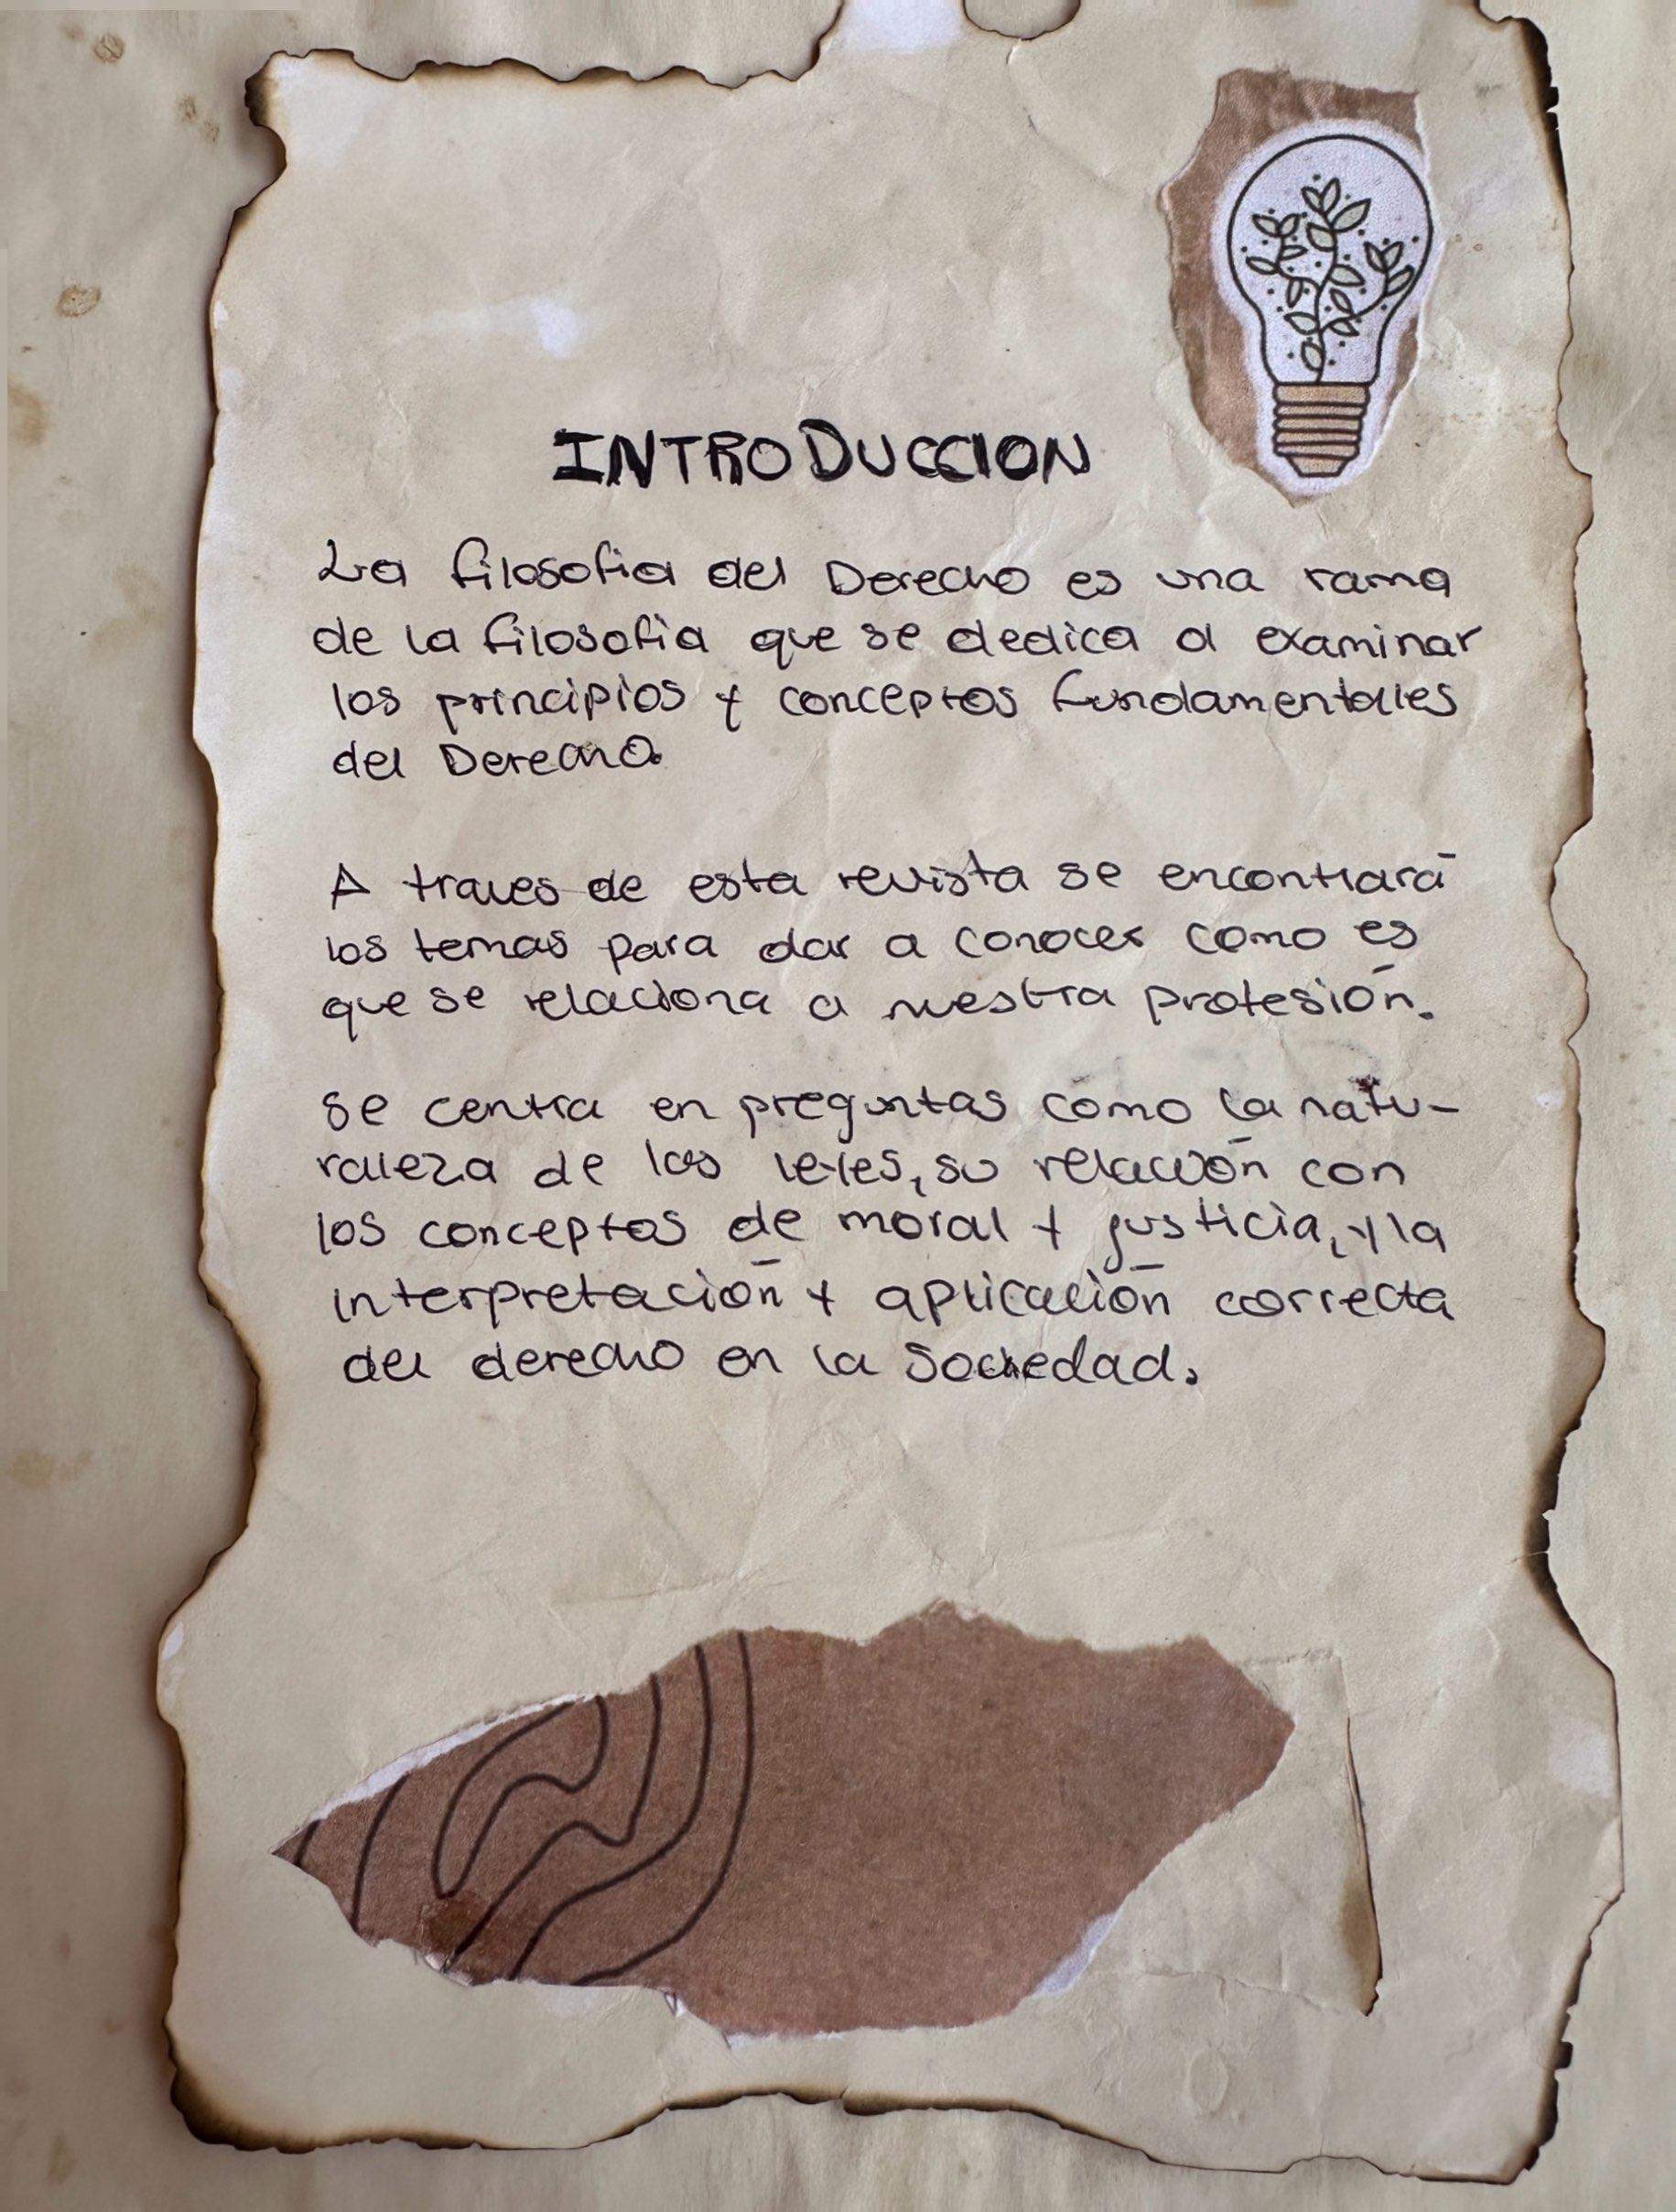 INTRODUCCION
La filosofia del Derecho es una rama
de la filosofia que se dedica a examinar
los principios y conceptos fundamentales
del Derecho.
A traves de esta revista se encontrará
los temas para dar a conocer como es
que se relaciona a nuestra profesión.
se centra en preguntas como la natu-
raleza de las leyes, su relación con
los conceptos de moral y justicia, y la
interpretación y aplicación correcta
del derecho en la Sociedad.